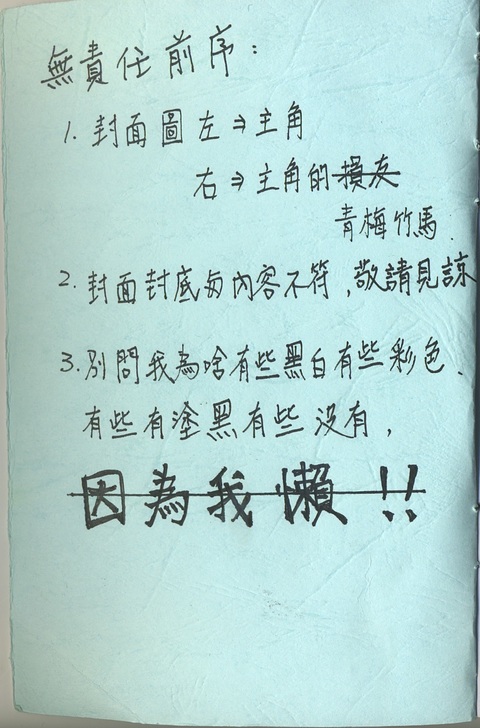 無責任前序：
1. 封面圖 左⇒主角
右⇒主角的損友
青梅竹馬.
2. 封面封底与內容不符,敬請見諒
3. 別問我為啥有些黑白有些彩色.
有些有塗黑有些沒有,
因為我懶!!